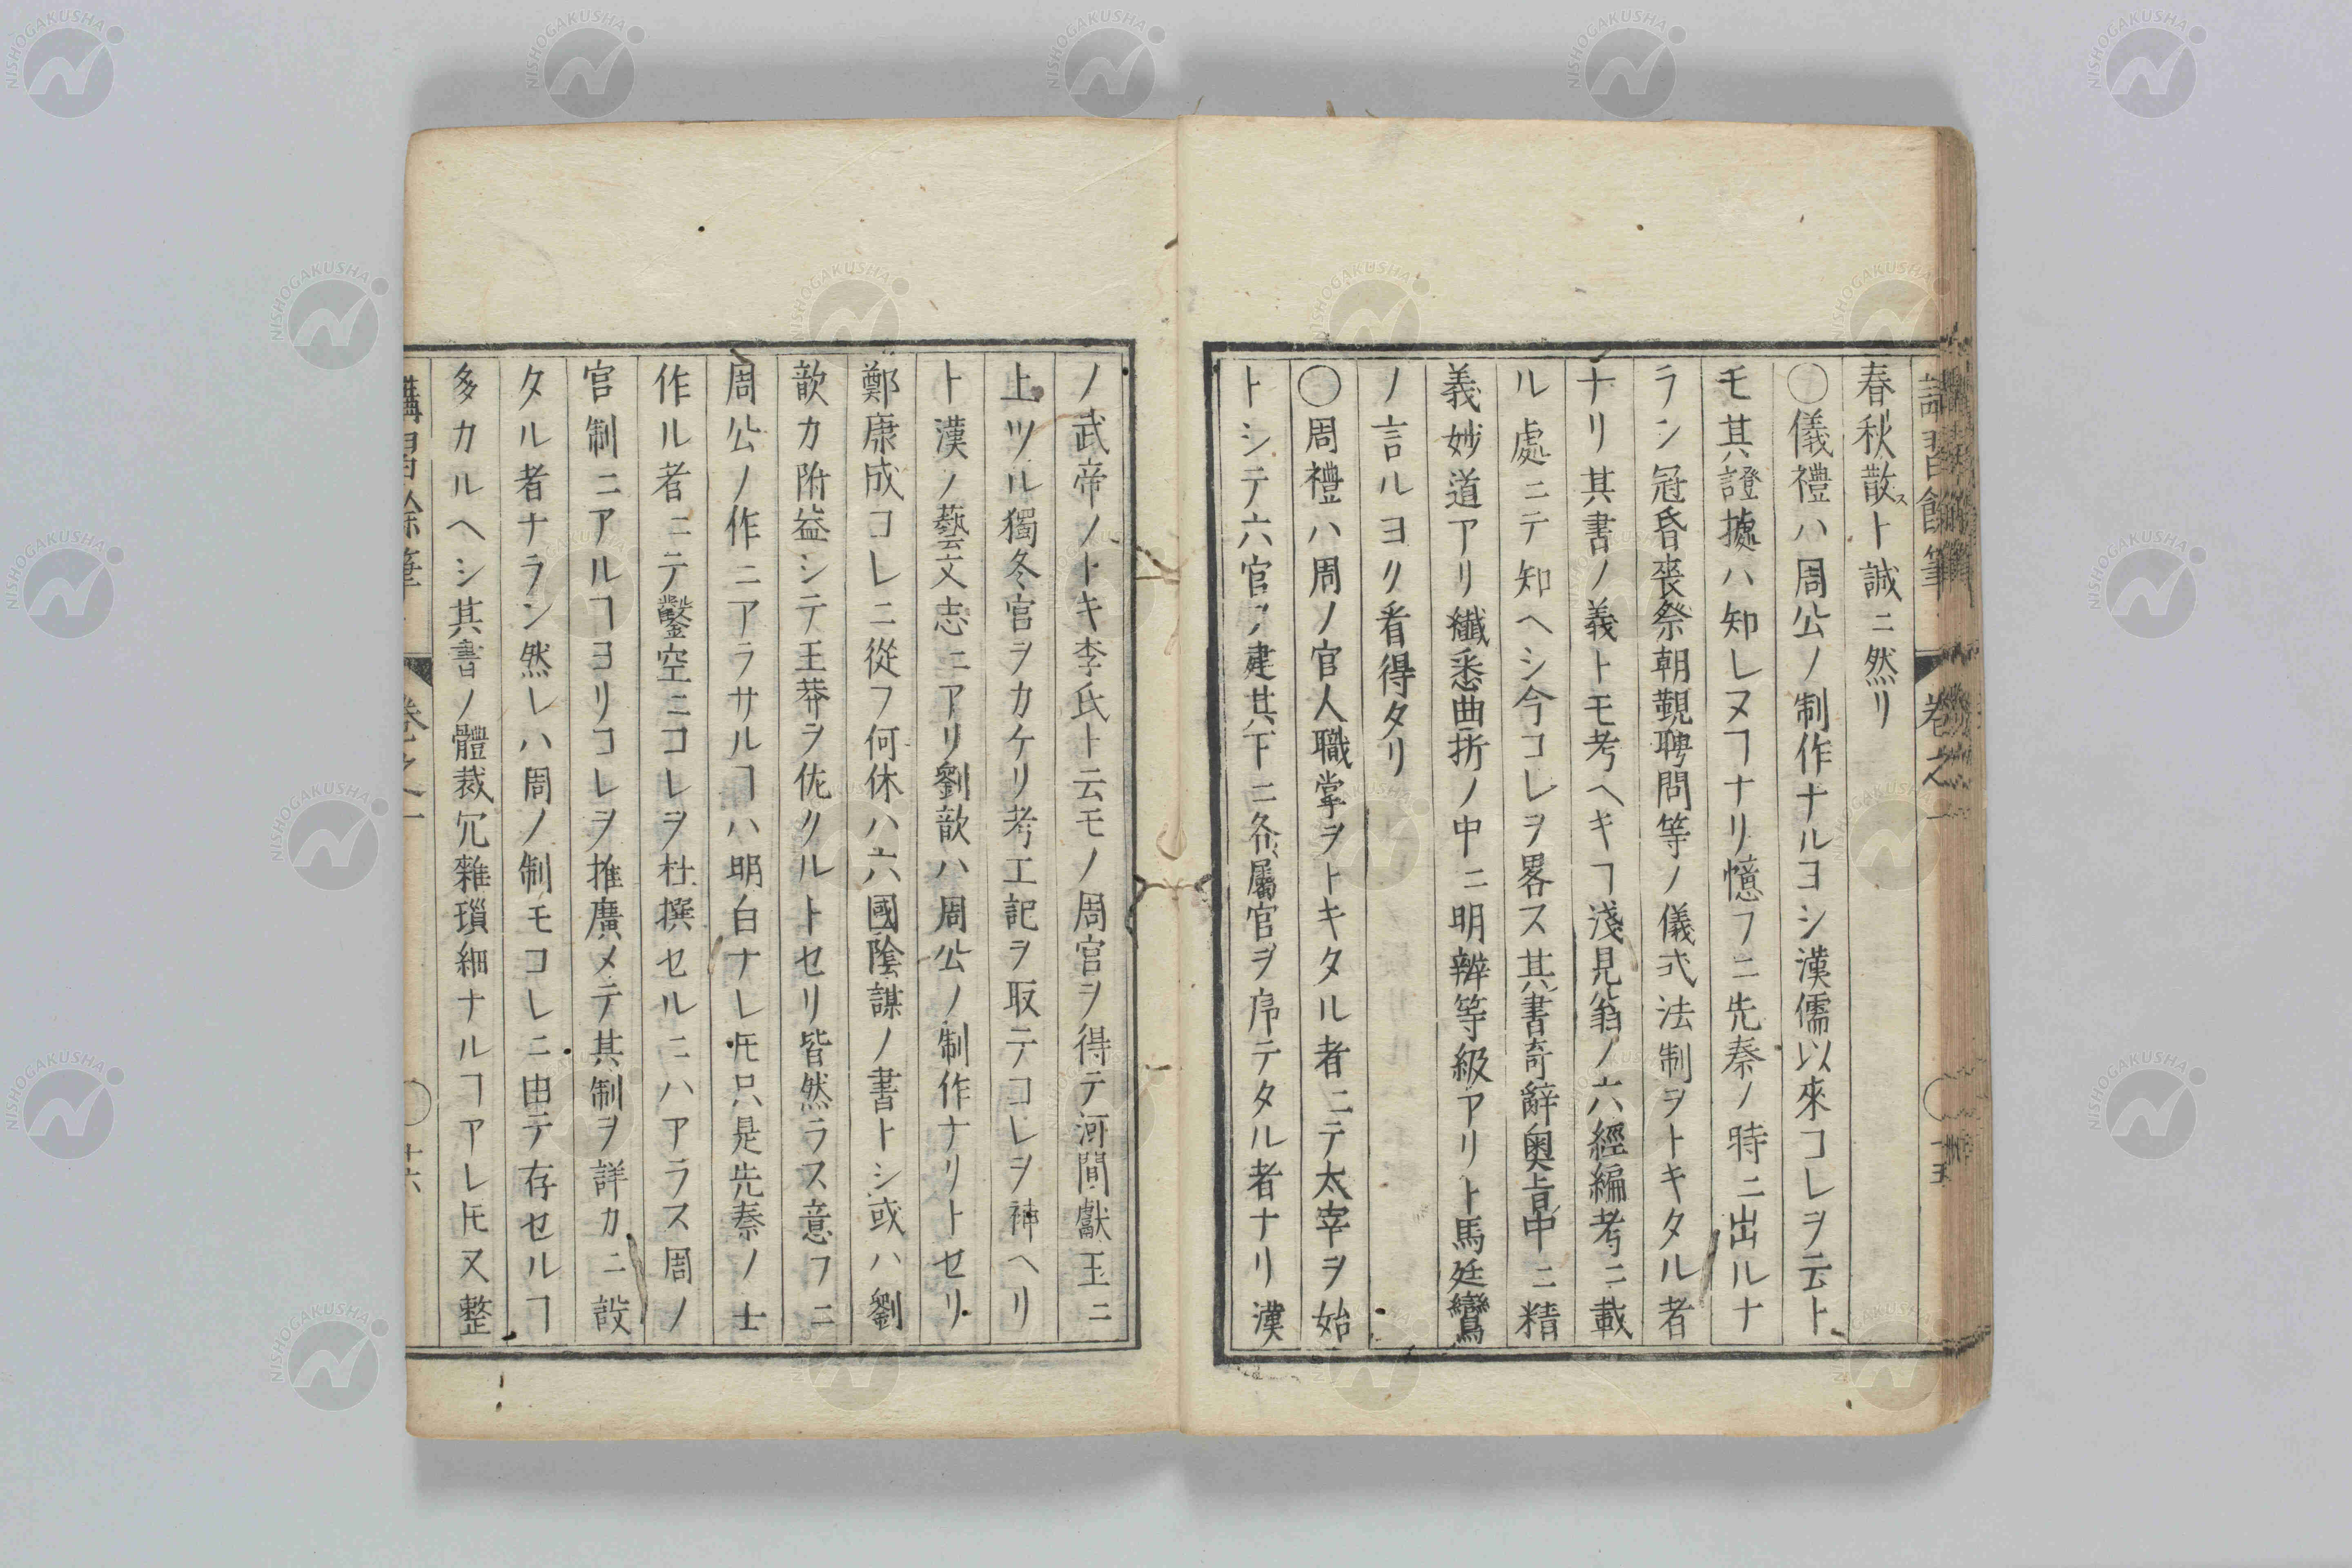 春秋散スト誠ニ然リ
〇儀禮ハ周公ノ制作ナルヨシ漢儒以來コレヲ云ト
モ其證據ハ知レヌヿナリ憶フニ先秦ノ時ニ出ルナ
ラン冠昏喪祭朝覲聘問等ノ儀式法制ヲトキタル者
ナリ其書ノ義トモ考ヘキヿ淺見翁ノ六經編考ニ載
ル處ニテ知ヘシ今コレヲ畧ス其書奇辭奥旨中ニ精
義妙道アリ纎悉曲折ノ中ニ明辨等級アリト馬廷鸞
ノ言ルヨク看得タリ
〇周禮ハ周ノ官人職掌ヲトキタル者ニテ太宰ヲ始
トシテ六官ヲ建其下ニ各屬官ヲ序テタル者ナリ漢
ノ武帝ノトキ李氏ト云モノ周官ヲ得テ河間獻王ニ
上ツル獨冬官ヲカケリ考工記ヲ取テコレヲ補ヘリ
ト漢ノ藝文志ニアリ劉歆ハ周公ノ制作ナリトセリ
鄭康成コレニ從フ何休ハ六國陰謀ノ書トシ或ハ劉
歆カ附益シテ王莽ヲ佐クルトセリ皆然ラス意フニ
周公ノ作ニアラサルヿハ明白ナレ𪜈只是先秦ノ士
作ル者ニテ鑿空ニコレヲ杜撰セルニハアラス周ノ
官制ニアルヿヨリコレヲ推廣メテ其制ヲ詳カニ設
タル者ナラン然レハ周ノ制モコレニ由テ存セルヿ
多カルヘシ其書ノ體裁冗雜瑣細ナルヿアレ𪜈又整
講習餘筆
卷之一
〇十六